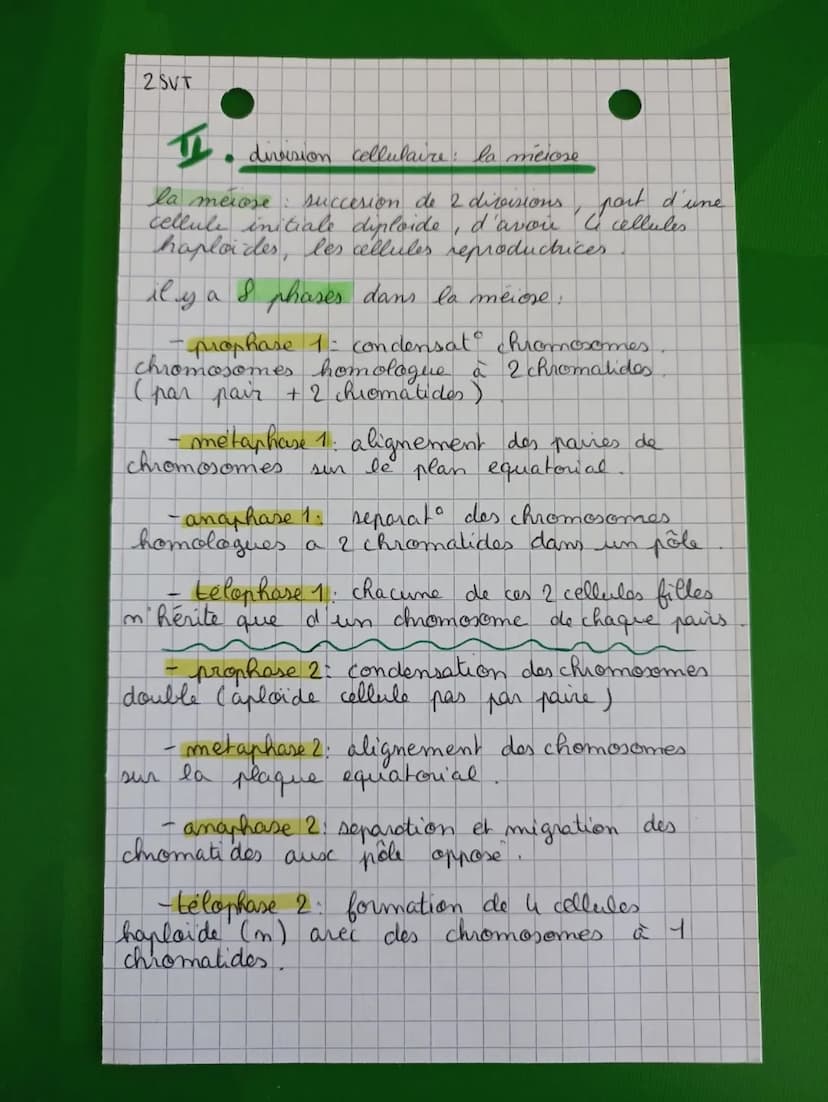 2SVT
II. division cellulaire : la méiose
la méiose : succesion de 2 divisions, part d'une
cellule initiale diploïde, d'avoir 4 cellules
haploïdes, les cellules reproductrices.
il y a 8 phases dans la méiose :
- prophase 1 : condensat° chromosomes.
chromosomes homologue à 2 chromatides
(par pair + 2 chromatides)
- métaphase 1 : alignement des paires de
chromosomes sur le plan equatorial.
- anaphase 1 : separat° des chromosomes
homologues a 2 chromatides dans un pôle.
- télophase 1 : chacune de ces 2 cellules filles
n'hérite que d'un chromosome de chaque pairs.
- prophase 2 : condensation des chromosomes
double (aploïde cellule pas par paire)
- metaphase 2 : alignement des chomosomes
sur la plaque equatorial.
- anaphase 2 : separation et migration des
chromatides aux pôle opposé.
- télophase 2 : formation de 4 cellules
haploïde (n) avec des chromosomes à 1
chromatides.